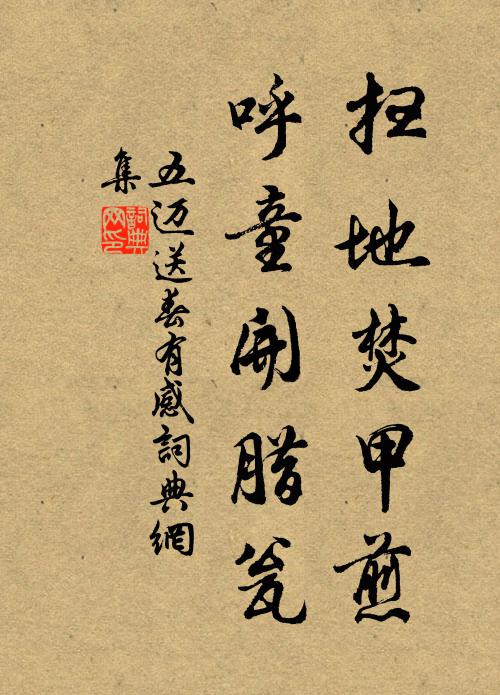 扫地焚甲煎
呼童開腊瓮
五迈送春有感詞典網
集
詞典
网印